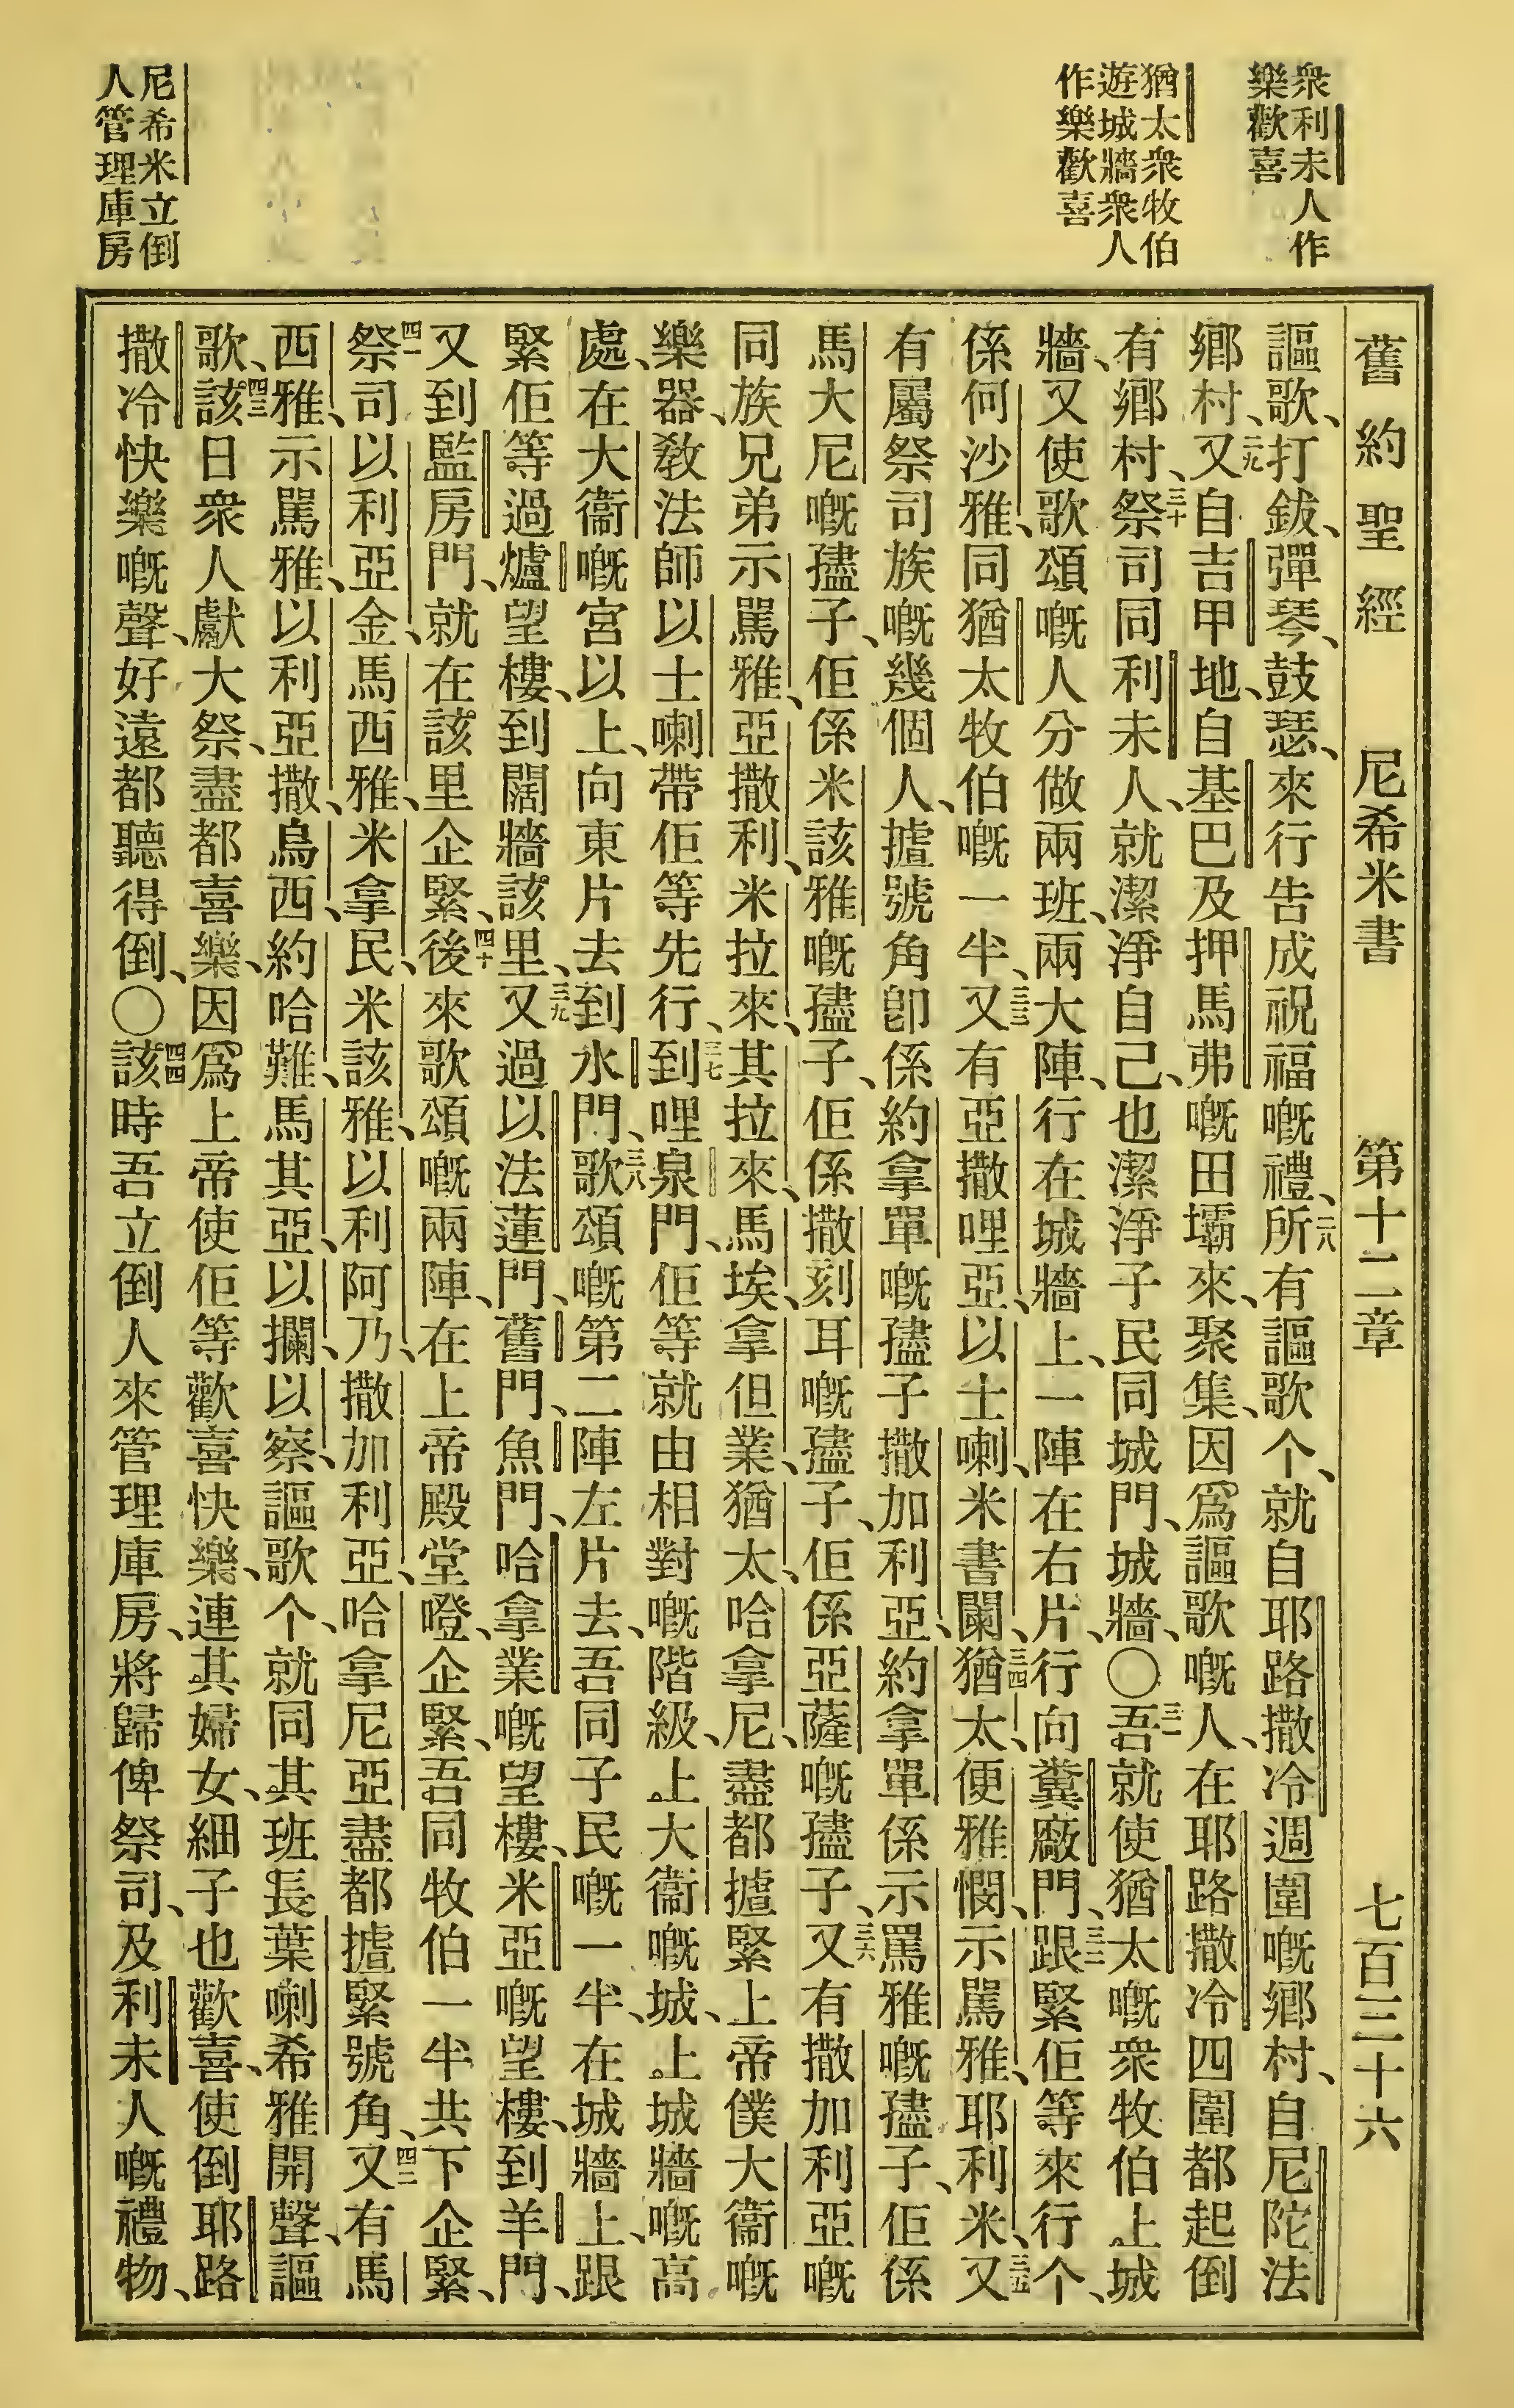 舊約聖經 尼希米書 第十二章 七百三十六
衆利未人作
樂歡喜
猶太衆牧伯
遊城牆衆人
作樂歡喜
尼希米立倒
人管理庫房
謳歌、打鈸、彈琴、鼓瑟、來行告成祝福嘅禮、二八所有謳歌个、就自耶路撒冷週圍嘅鄉村、自尼陀法
鄉村、二九又自吉甲地、自基巴及押馬弗嘅田壩來、聚集、因爲謳歌嘅人、在耶路撒冷四圍都起倒
有鄉村、三十祭司同利未人、就潔淨自己、也潔淨子民同城門、城牆、〇三一吾就使猶太嘅衆牧伯上城
牆、又使歌頌嘅人分做兩班、兩大陣、行在城牆上、一陣在右片、行向糞廠門、三二跟緊佢等來行个、
係何沙雅、同猶太牧伯嘅一半、三三又有亞撒哩亞、以士喇、米書闌、三四猶太、便雅憫、示罵雅、耶利米、三五又
有屬祭司族嘅幾個人、攎號角卽係約拿單嘅孻子撒加利亞、約拿單係示罵雅嘅孻子、佢係
馬大尼嘅孻子、佢係米該雅嘅孻子、佢係撒刻耳嘅孻子、佢係亞薩嘅孻子、三六又有撒加利亞嘅
同族兄弟示罵雅、亞撒利、米拉來、其拉來、馬埃、拿但業、猶太、哈拿尼、盡都攎緊上帝僕大衞嘅
樂器、教法師以士喇帶佢等先行、三七到哩泉門、佢等就由相對嘅階級、上大衞嘅城、上城牆嘅高
處、在大衞嘅宮以上、向東片去到水門、三八歌頌嘅第二陣左片去、吾同子民嘅一半、在城牆上、跟
緊佢等過爐望樓、到闊牆該里、三九又過以法蓮門、舊門、魚門、哈拿業嘅望樓、米亞嘅望樓、到羊門、
又到監房門、就在該里企緊、四十後來歌頌嘅兩陣、在上帝殿堂噔、企緊、吾同牧伯一半共下企緊、
四一祭司以利亞金、馬西雅、米拿民、米該雅、以利阿乃、撒加利亞、哈拿尼亞盡都攎緊號角、四二又有馬
西雅、示罵雅、以利亞撒、烏西、約哈難、馬其亞、以攔、以察、謳歌个、就同其班長葉喇希雅開聲、謳
歌、四三該日衆人獻大祭、盡都喜樂、因爲上帝使佢等歡喜快樂、連其婦女、細子也歡喜、使倒耶路
撒冷快樂嘅聲、好遠都聽得倒、〇四四該時吾立倒人來管理庫房、將歸俾祭司、及利未人嘅禮物、